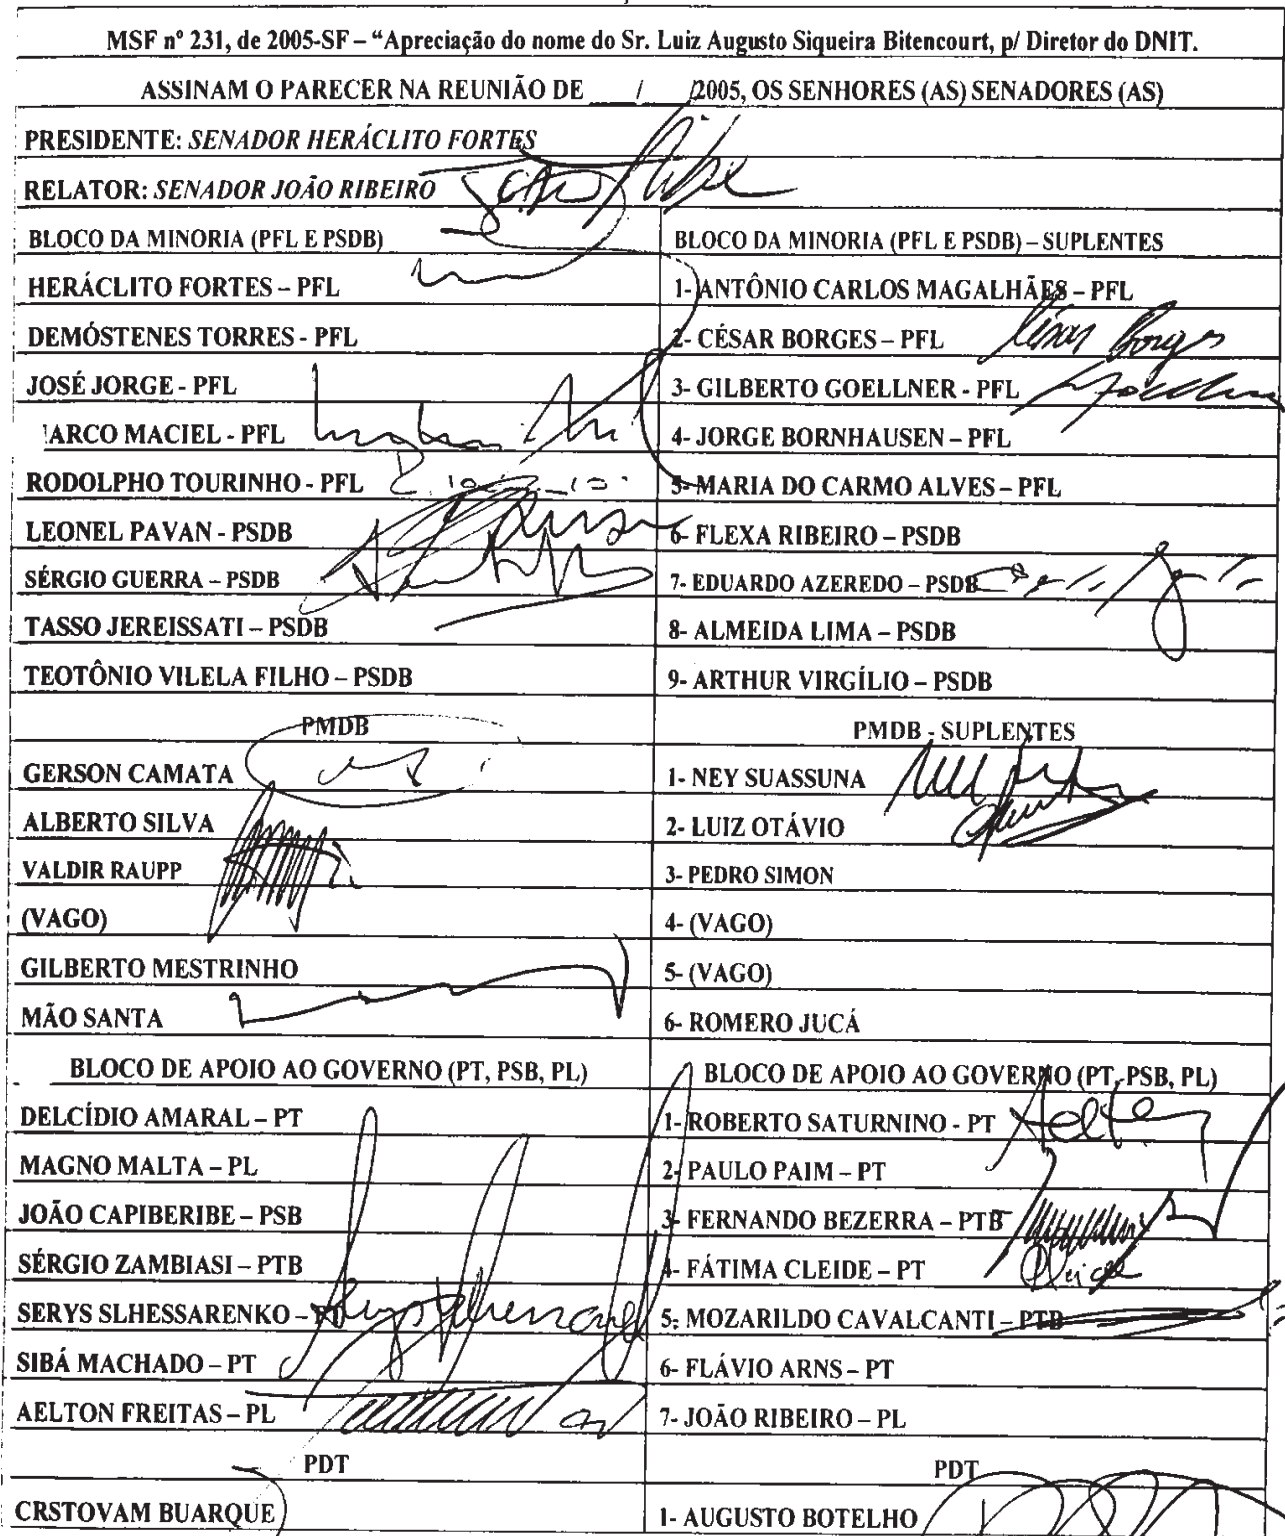 MSF nº 231, de 2005-SF – “Apreciação do nome do Sr. Luiz Augusto Siqueira Bitencourt, p/ Diretor do DNIT.
ASSINAM O PARECER NA REUNIÃO DE ___/___/2005, OS SENHORES (AS) SENADORES (AS)
PRESIDENTE: SENADOR HERÁCLITO FORTES
RELATOR: SENADOR JOÃO RIBEIRO
BLOCO DA MINORIA (PFL E PSDB)
BLOCO DA MINORIA (PFL E PSDB) – SUPLENTES
HERÁCLITO FORTES – PFL
1- ANTÔNIO CARLOS MAGALHÃES – PFL
DEMÓSTENES TORRES - PFL
2- CÉSAR BORGES – PFL César Borges
JOSÉ JORGE - PFL
3- GILBERTO GOELLNER - PFL
ARCO MACIEL - PFL
4- JORGE BORNHAUSEN – PFL
RODOLPHO TOURINHO - PFL
5- MARIA DO CARMO ALVES – PFL
LEONEL PAVAN - PSDB
6- FLEXA RIBEIRO – PSDB
SÉRGIO GUERRA – PSDB
7- EDUARDO AZEREDO – PSDB
TASSO JEREISSATI – PSDB
8- ALMEIDA LIMA – PSDB
TEOTÔNIO VILELA FILHO – PSDB
9- ARTHUR VIRGÍLIO – PSDB
PMDB
PMDB - SUPLENTES
GERSON CAMATA
1- NEY SUASSUNA
ALBERTO SILVA
2- LUIZ OTÁVIO
VALDIR RAUPP
3- PEDRO SIMON
(VAGO)
4- (VAGO)
GILBERTO MESTRINHO
5- (VAGO)
MÃO SANTA
6- ROMERO JUCÁ
BLOCO DE APOIO AO GOVERNO (PT, PSB, PL)
BLOCO DE APOIO AO GOVERNO (PT, PSB, PL)
DELCÍDIO AMARAL – PT
1- ROBERTO SATURNINO - PT
MAGNO MALTA – PL
2- PAULO PAIM – PT
JOÃO CAPIBERIBE – PSB
3- FERNANDO BEZERRA – PTB
SÉRGIO ZAMBIASI – PTB
4- FÁTIMA CLEIDE – PT
SERYS SLHESSARENKO – PT
5- MOZARILDO CAVALCANTI – PTB
SIBÁ MACHADO – PT
6- FLÁVIO ARNS – PT
AELTON FREITAS – PL
7- JOÃO RIBEIRO – PL
PDT
PDT
CRSTOVAM BUARQUE
1- AUGUSTO BOTELHO